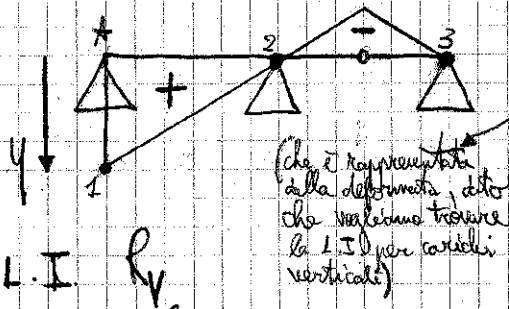 A
2
3
+
-
y
1
(che è rappresentata
dalla deformata, dato
che vogliamo trovare
la L.I. per carichi
verticali)
L.I. R_V